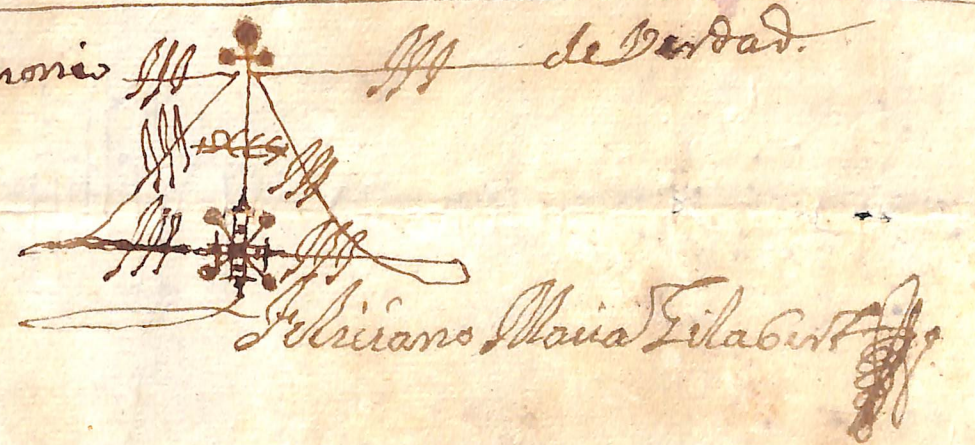 monio de Verdad.
Feliciano Maria Gilabert